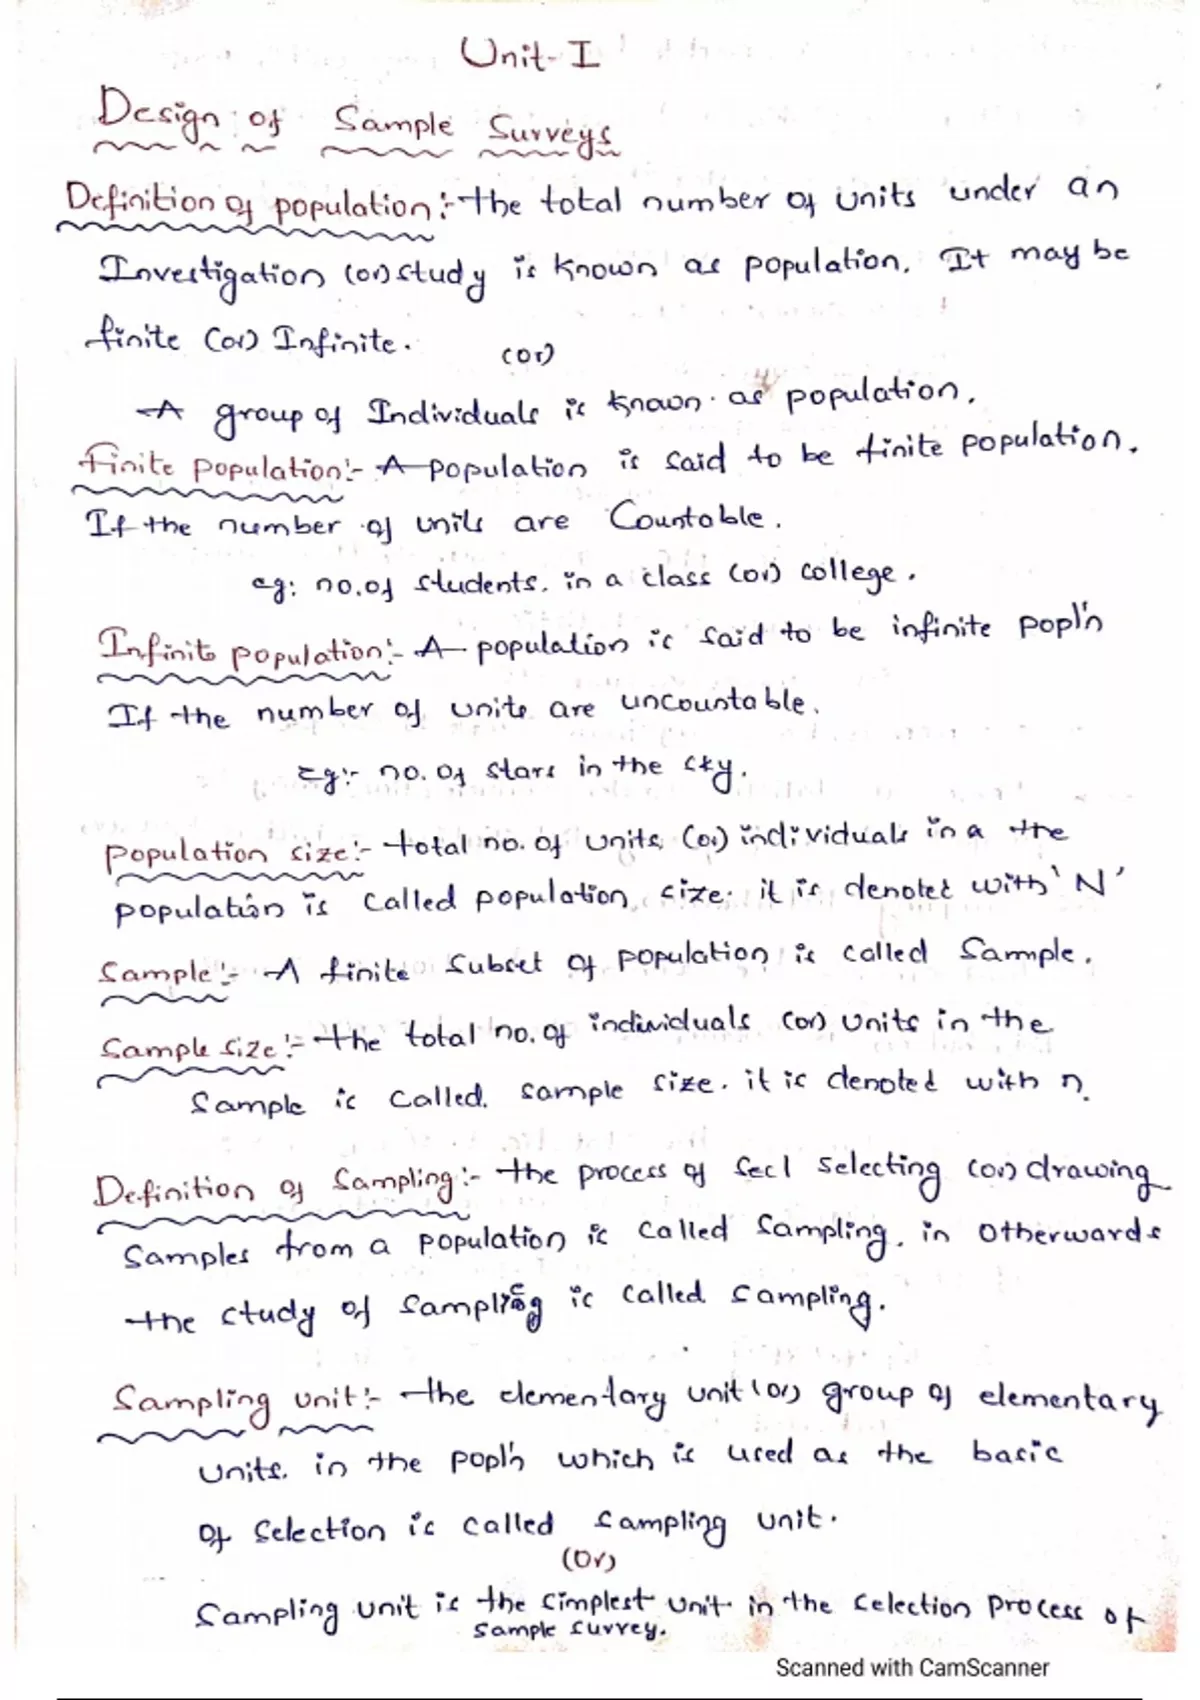 Unit-I
Design of Sample Surveys
Definition of population:- the total number of units under an
Investigation (or) study is known as population. It may be
finite (or) Infinite.
(or)
A group of Individuals is known as population.
finite population:- A population is said to be finite population.
If the number of units are Countable.
eg: no.of students. in a class (or) college.
Infinite population:- A population is said to be infinite popl'n
If the number of units are uncountable.
Eg:- no. of stars in the sky.
population size:- total no. of units (or) individuals in a the
population is called population size. it is denoted with 'N'
Sample:- A finite subset of population is called Sample.
Sample size:- the total no. of individuals (or) units in the
Sample is called. sample size. it is denoted with n.
Definition of Sampling:- the process of secl selecting (or) drawing
samples from a population is called Sampling. in otherwards
the study of sampling is called sampling.
Sampling unit:- the elementary unit (or) group of elementary
units. in the popl'n which is used as the basic
of selection is called sampling unit.
(or)
Sampling unit is the simplest unit in the selection process of
sample survey.
Scanned with CamScanner